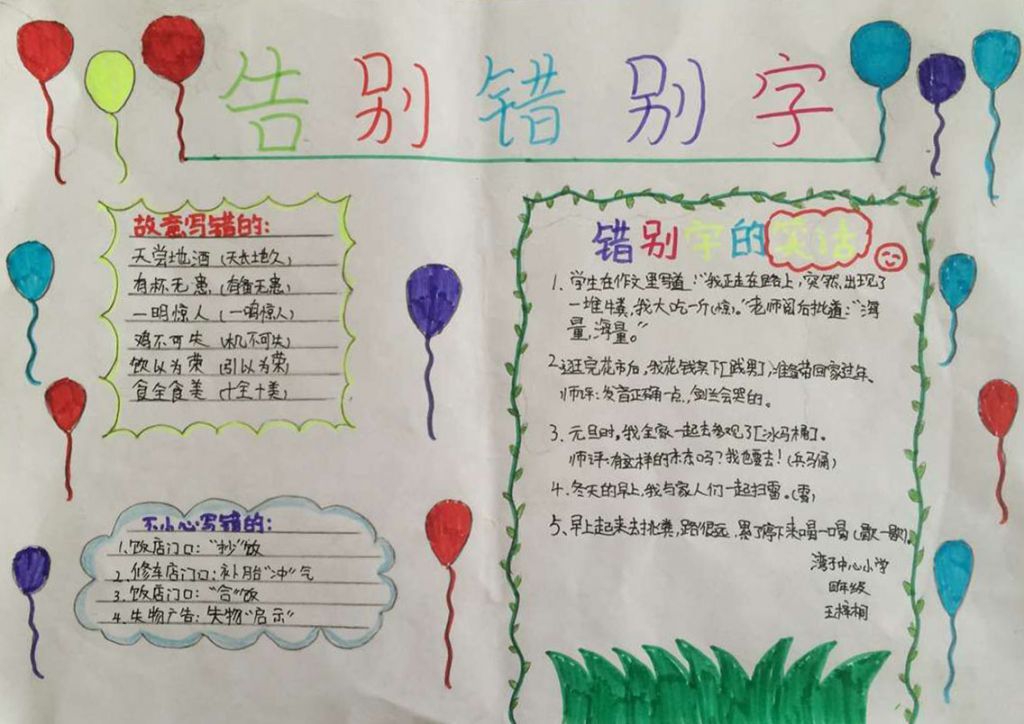 告别错别字
故意写错的:
天尝地酒 (天长地久)
有杯无患 (有备无患)
一明惊人 (一鸣惊人)
鸡不可失 (机不可失)
饮以为荣 (引以为荣)
食全食美 (十全十美)
不小心写错的:
1、饭店门口:“抄”饭
2、修车店门口:补胎“冲”气
3、饭店门口:“合”饭
4、失物广告:失物“启示”
错别字的笑话
1、学生在作文里写道:“我正走在路上,突然,出现了
一堆牛粪,我大吃一斤(惊)。”老师阅后批道:“海
量,海量。”
2、逛完花市后,我花钱买下[贱男]准备带回家过年。
师评:发音正确一点,剑兰会哭的。
3、元旦时,我全家一起去参观了[冰马桶]。
师评:有这样的桶吗?我也要去!(兵马俑)
4、冬天的早上,我与家人们一起扫雷。(雪)
5、早上起来去挑粪,路很远,累了停下来喝一喝(歇一歇)。
湾子中心小学
四年级
王梓桐